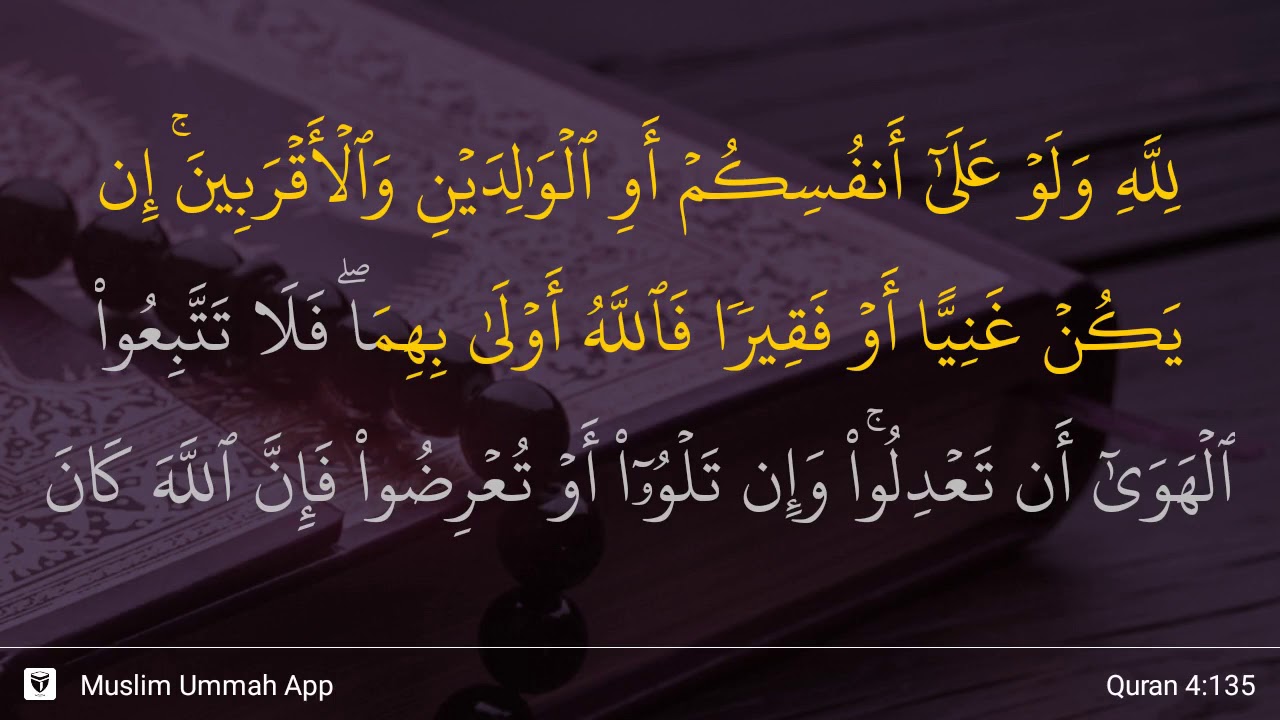 لِلَّهِ وَلَوۡ عَلَىٰٓ أَنفُسِكُمۡ أَوِ ٱلۡوَٰلِدَيۡنِ وَٱلۡأَقۡرَبِينَۚ إِن
يَكُنۡ غَنِيًّا أَوۡ فَقِيرٗا فَٱللَّهُ أَوۡلَىٰ بِهِمَاۖ فَلَا تَتَّبِعُواْ
ٱلۡهَوَىٰٓ أَن تَعۡدِلُواْۚ وَإِن تَلۡوُۥٓاْ أَوۡ تُعۡرِضُواْ فَإِنَّ ٱللَّهَ كَانَ
Muslim Ummah App
Quran 4:135